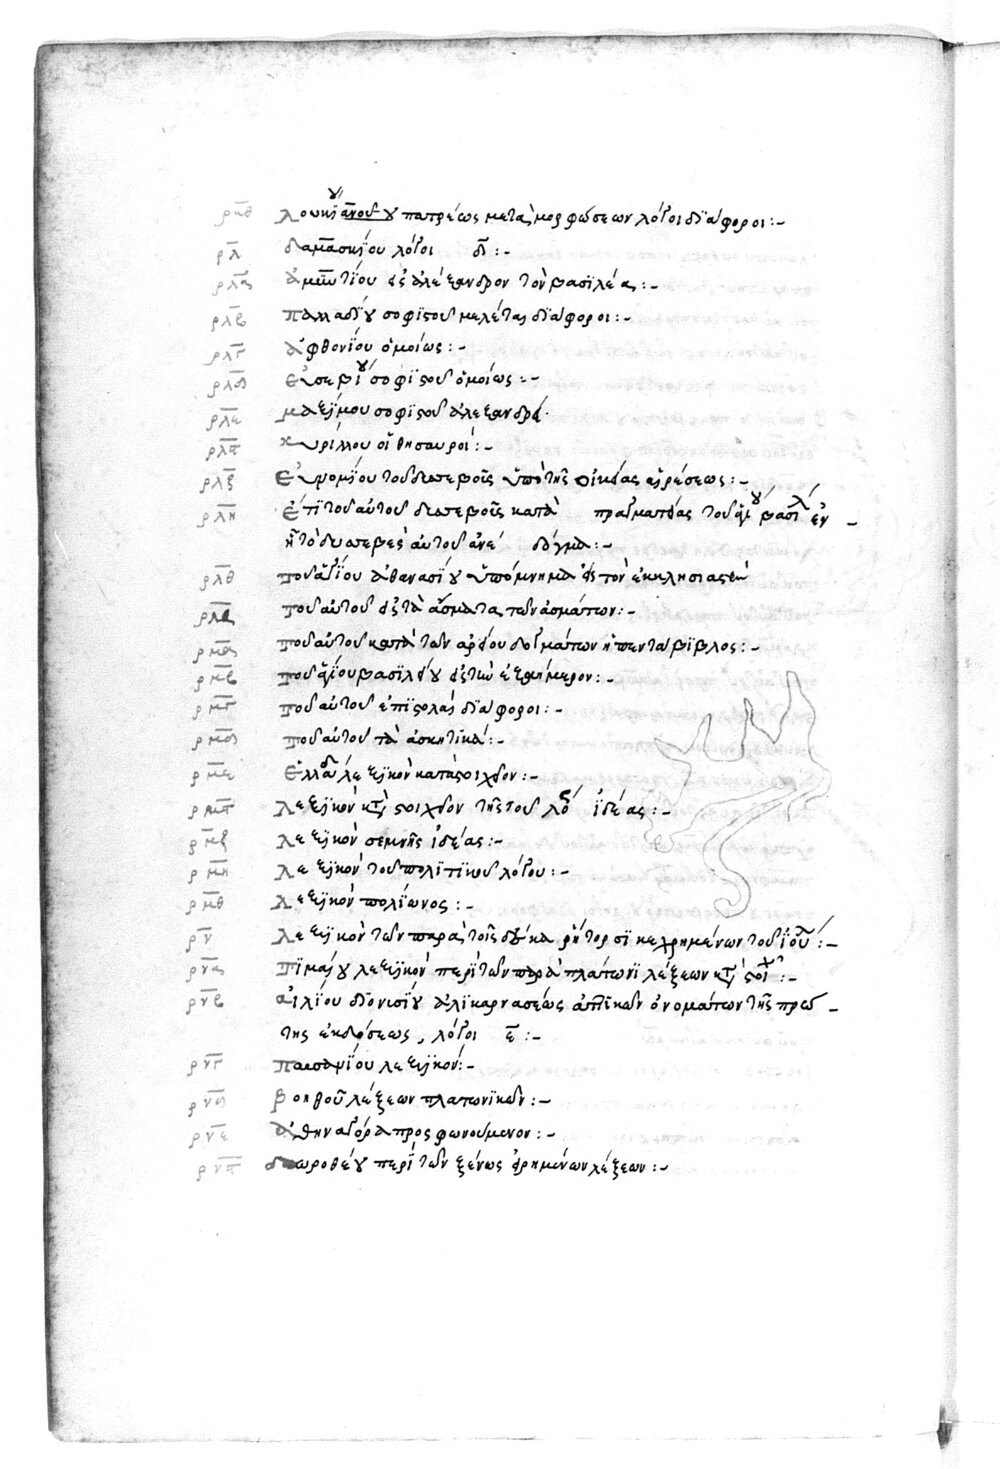 ρκθ λουκιανοῦ πατρέως μεταμορφώσεων λόγοι διάφοροι :-
ρλ δαμασκίου λόγοι δ :-
ρλα ἀμυντίου εἰς ἀλέξανδρον τὸν βασιλέα :-
ρλβ παλλαδίου σοφιστοῦ μελέται διάφοροι :-
ρλγ ἀφθονίου ὁμοίως :-
ρλδ εὐσεβίου σοφιστοῦ ὁμοίως :-
ρλε μαξίμου σοφιστοῦ ἀλεξανδρέ
ρλϛ κυρίλλου οἱ θησαυροί :-
ρλζ εὐνομίου τοῦ δυσσεβοῦς ὑπὸ τῆς οἰκείας αἱρέσεως :-
ρλη ἔτι τοῦ αὐτοῦ δυσσεβοῦς κατὰ πραγματείας τοῦ ἁγίου βασιλ ἐν -
ᾗ τὸ δυσσεβὲς αὐτοῦ δόγμα :-
ρλθ τοῦ ἁγίου ἀθανασίου ὑπόμνημα εἰς τὸν ἐκκλησιαστὴν
ρμ τοῦ αὐτοῦ εἰς τὰ ᾄσματα τῶν ᾀσμάτων :-
ρμα τοῦ αὐτοῦ κατὰ τῶν ἀρείου δογμάτων ἡ πεντάβιβλος :-
ρμβ τοῦ ἁγίου βασιλείου εἰς τὴν ἑξαήμερον :-
ρμγ τοῦ αὐτοῦ ἐπιστολαὶ διάφοροι :-
ρμδ τοῦ αὐτοῦ τὰ ἀσκητικά :-
ρμε ἑλλαδίου λεξικὸν κατὰ στοιχεῖον :-
ρμϛ λεξικὸν κατὰ στοιχεῖον τῆς τοῦ λόγου ἰδέας :-
ρμζ λεξικὸν σεμνῆς ἰδέας :-
ρμη λεξικὸν τοῦ πολιτικοῦ λόγου :-
ρμθ λεξικὸν πολίωνος :-
ρν λεξικὸν τῶν παρὰ τοῖς δέκα ῥήτορσι κεχρημένων τοῦ ἰου :-
ρνα τιμαίου λεξικὸν περὶ τῶν παρὰ πλάτωνι λέξεων κατὰ στοιχ :-
ρνβ αἰλίου διονυσίου ἁλικαρνασέως ἀττικῶν ὀνομάτων τῆς πρώ -
της ἐκδόσεως, λόγοι ε :-
ρνγ παυσανίου λεξικόν :-
ρνδ βοηθοῦ λέξεων πλατωνικῶν :-
ρνε ἀθηναγόρᾳ προσφωνούμενον :-
ρνϛ δωροθέου περὶ τῶν ξένως εἰρημένων λέξεων :-